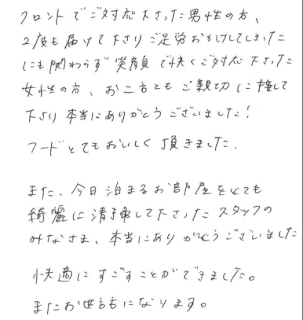 フロントでご対応下さった男性の方、
2度も届けて下さりご足労おかけしてしまった
にも関わらず笑顔で快くご対応下さった
女性の方、お二方ともご親切に接して
下さり本当にありがとうございました!
フードとてもおいしく頂きました.
また、今日泊まるお部屋をとても
綺麗に清掃して下さったスタッフの
みなさま、本当にありがとうございました
快適にすごすことができました。
またお世話になります。